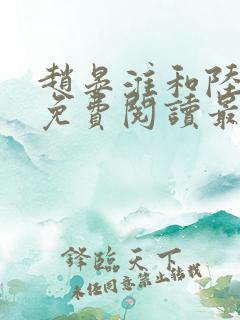 趙晏淮和陸
免費閱讀最
鋒臨天下
未經同意禁止轉載